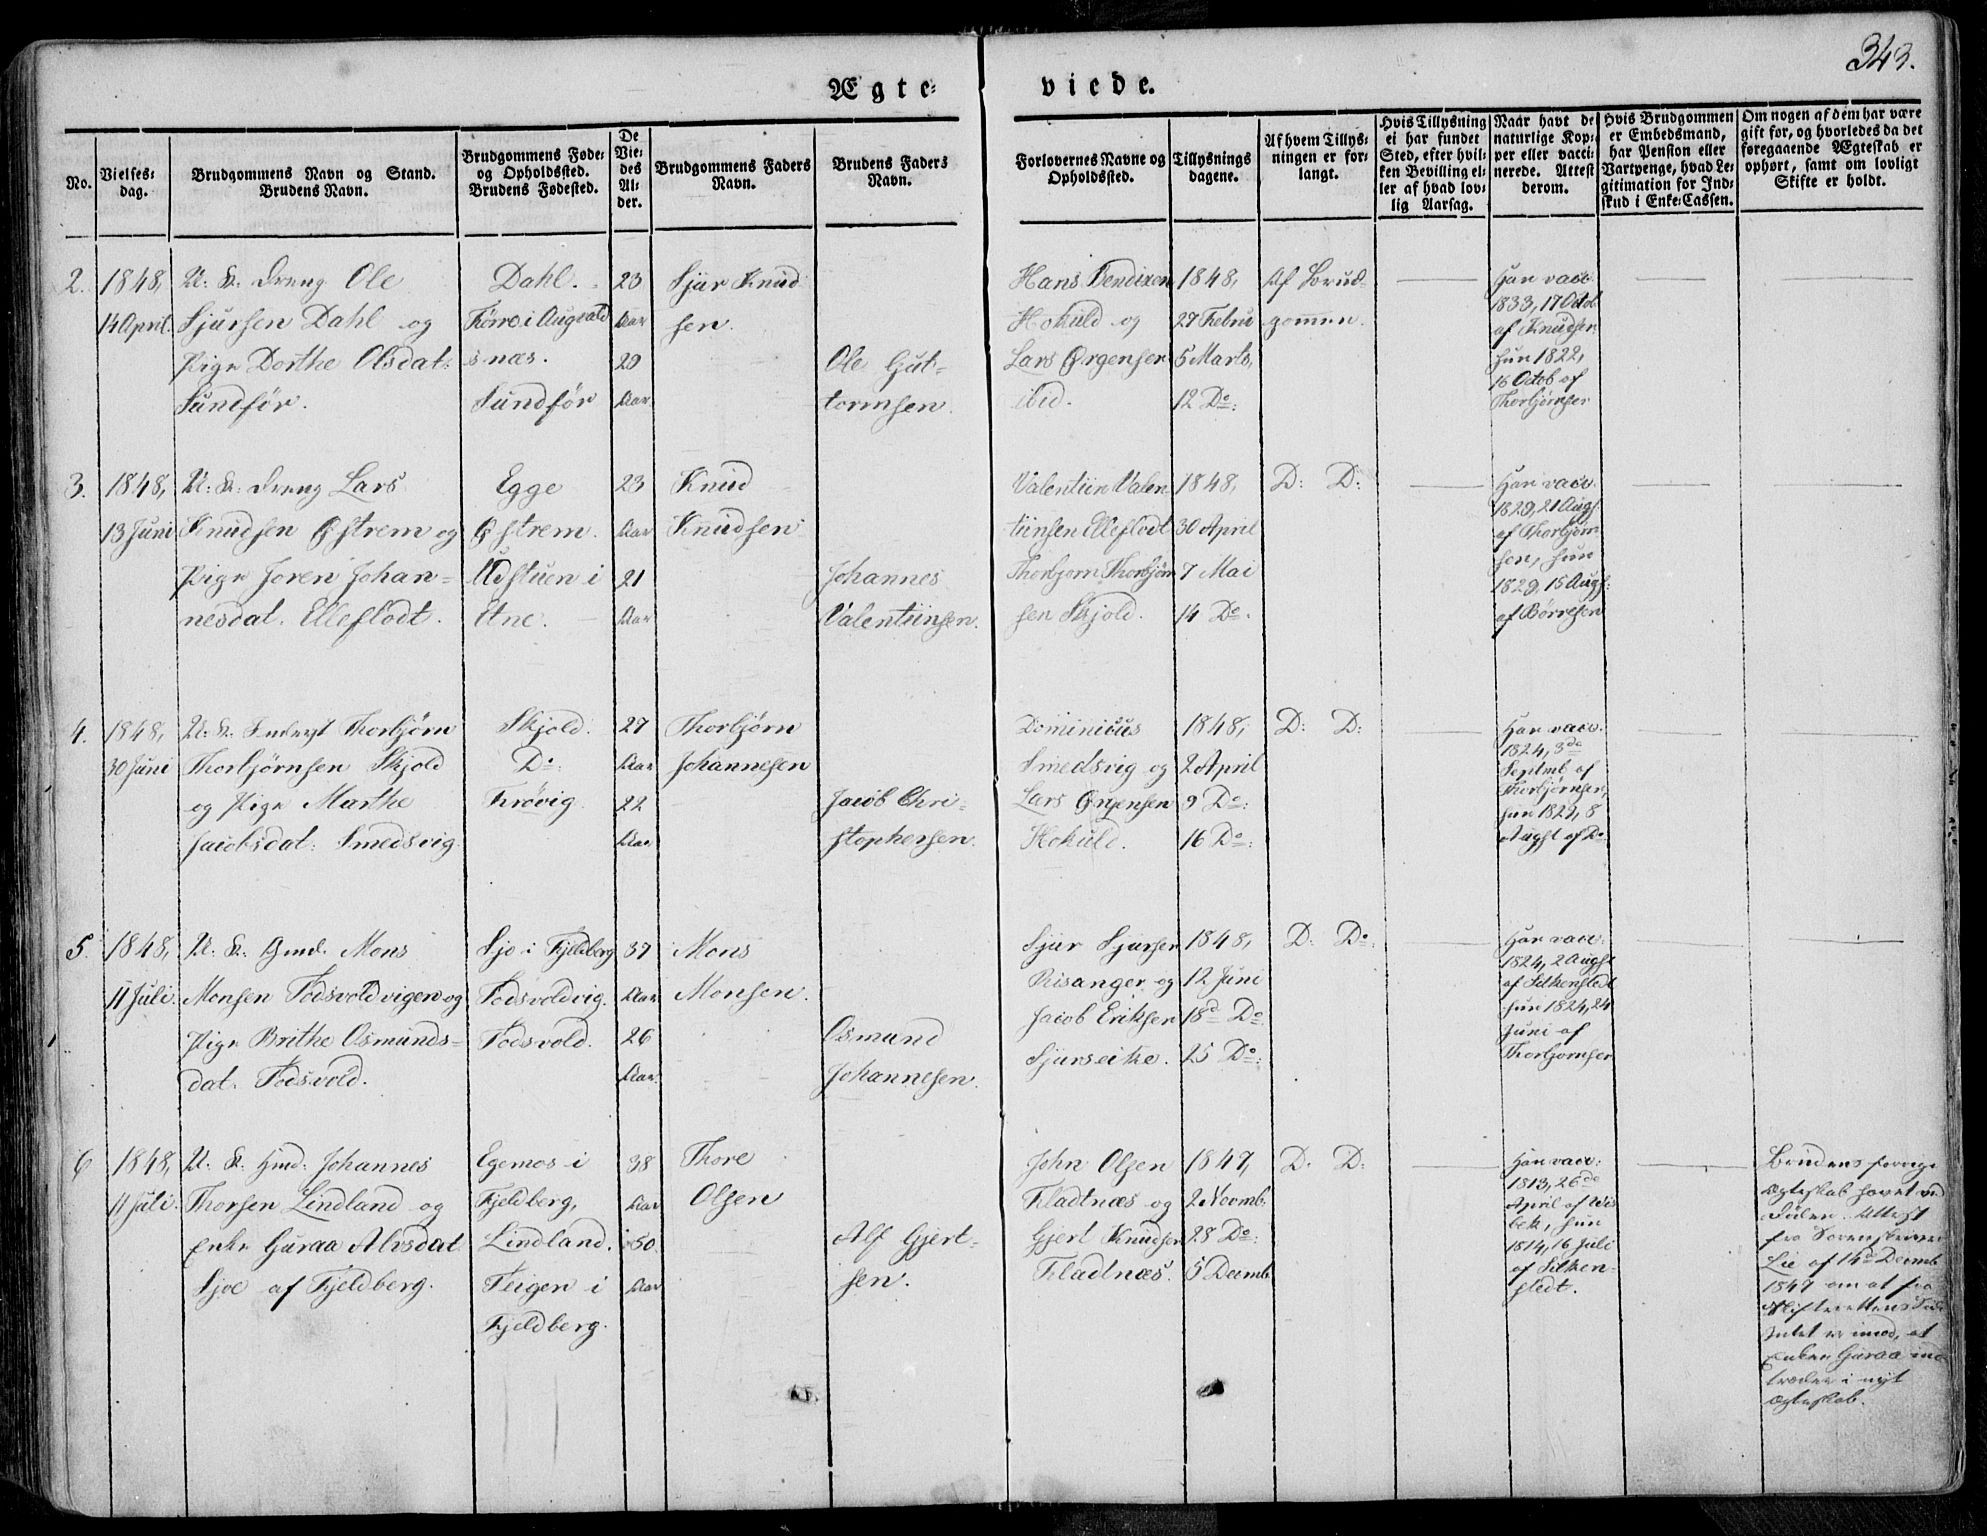 343.
Ægte- viede.
No.
Vielses-
dag.
Brudgommens Navn og Stand.
Brudens Navn.
Brudgommens Føde-
og Opholdssted.
Brudens Fødested.
De
Vie-
des
Al-
der.
Brudgommens Faders
Navn.
Brudens Faders
Navn.
Forlovernes Navne og
Opholdssted.
Tillysnings
dagene.
Af hvem Tillys-
ningen er for-
langt.
Hvis Tillysning
ei har fundet
Sted, efter hvil-
ken Bevilling el-
ler af hvad lov-
lig Aarsag.
Naar havt de
naturlige Kop-
per eller vacci-
nerede. Attest
derom.
Hvis Brudgommen
er Embedsmand,
har Pension eller
Vartpenge, hvad Le-
gitimation for Ind-
skud i Enke-Cassen.
Om nogen af dem har være
gift før, og hvorledes da det
foregaaende Ægteskab er
ophørt, samt om lovligt
Skifte er holdt.
2.
1848,
14 April.
U: K: Dreng Ole
Sjursen Dahl og
Pige Dorthe Olsdat:
Sundfør.
Dahl.
Kørno i Augvald
snæs.
Sundfør
23
Aar
20
Aar.
Sjur Knud
sen.
Ole Gut-
tormsen.
Hans Bendixen
Hokuld og
Lars Ørgensen
ibid.
1848,
27 Febru
5 Marts,
12 Do:
Af Brud-
gommen.
Han vacc.
1833, 17 Octob
af Knudsen
hun 1822,
16 Octob af
Thorbjørnsen
3.
1848,
13 Juni
U: K: Dreng Lars
Knudsen Østrem og
Pige Joren Johan-
nesdat. Elleflodt.
Egge
Østrem.
Udstuen i
Etne.
23
Aar
21
Aar
Knud
Knudsen
Johannes
Valentiinsen.
Valentiin Valen
tiinsen Elleflodt
Thorbjørn Thorbjørn
sen Skjold.
1848,
30 April
7 Mai
14 Do.
D: D:
Han vacc.
1829, 21 Augs.
af Thorbjørn
sen, hun
1829, 15 Augs:
af Børresen
4.
1848,
30 Juni
U: K: Thorbjørn
Thorbjørnsen Skjold
og Pige Marthe
Jacobsdat: Smedsvig.
Skjold.
Do:
Krøvig.
27
Aar
22
Aar
Thorbjørn
Johannesen
Jacob Chri-
stophersen.
Dominicus
Smedsvig og
Lars Ørgensen
Hokuld.
1848,
2 April
9 Do:
16 Do:
D: D:
Han vacc.
1824, 3de
Septmb af
Thorbjørnsen,
hun 1827, 8
Augst af Do
5.
1848,
11 Juli.
U: K: Gmd. Mons
Monsen Fodsvoldvigen og
Pige Brithe Osmunds-
dat. Fodsvold.
Sjo i Fjeldberg
Fodsvoldvig.
Fodsvold.
37
Aar
26
Aar.
Mons
Monsen.
Osmund
Johannesen.
Sjur Sjursen
Risanger og
Jacob Eriksen
Sjurseike.
1848,
12 Juni
18d Do.
25 Do:
D: Do:
Han vacc:
1824, 2 Augst
af Silkenstedt
hun 1824, 24
Juni af
Thorbjørnsen
6
1848,
11 Juli.
U. K: Hmd: Johannes
Thorsen Lindland og
Enke Guraa Alvsdat
Sjoe af Fjeldberg.
Egemos i
Fjeldberg,
Lindland.
Fleigen i
Fjeldberg.
38
Aar
50.
Aar
Thore
Olsen
Alf Gjert-
sen.
John Olsen
Fladtnæs og
Gjert Knudsen
Fladtnæs.
1847,
2 Novmb.
28 Do:
5 Decmb
D. D:
Han vacc:
1813, 26de
April af Wis
bek, hun
1814, 16 Juli
af Silken-
stedt.
Brudens forrige
Ægteskab hævet ved
Døden. Attest
fra Sorenskriver
Lie af 14d Decmb
1847 om at fra
Skifterettens Side
Intet er imod, at
Enken Guraa ind
træder i nyt
Ægteskab.